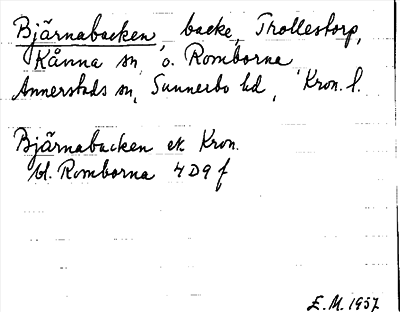 Bjärnabacken, backe, Trollestorp,
Kånna sn, o. Romborna
Annerstads sn, Sunnerbo hd, Kron. l.
Bjärnabacken ek Kron.
bl. Romborna 4D9f
E.M. 1957